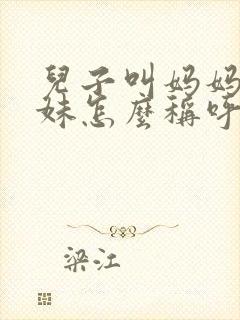 兒子叫妈妈
妹怎麼稱呼
梁江